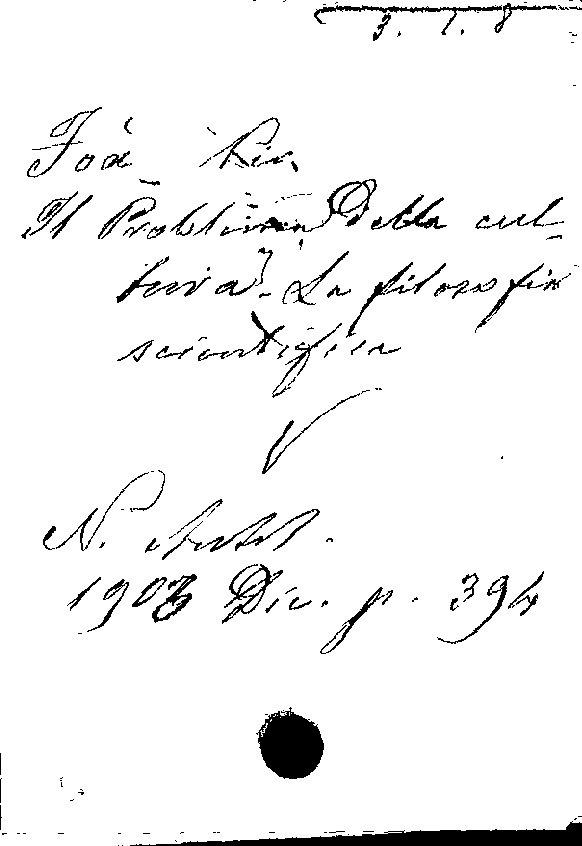 3. 1. 8
Foà Pio,
Il Problema Della cul-
tura. La filosofia
scientifica
V
N. Antol.
1903 Dic. p. 394